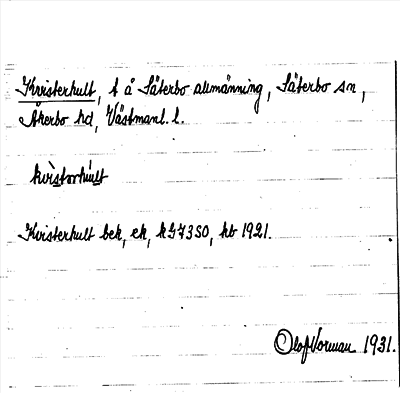 Kvisterhult, t å Säterbo allmänning, Säterbo sn,
Åkerbo hd, Västmanl. l.
kvìstərhúlt
Kvisterhult bek, ek, kG73SO, hb 1921.
Olof Norman 1931.